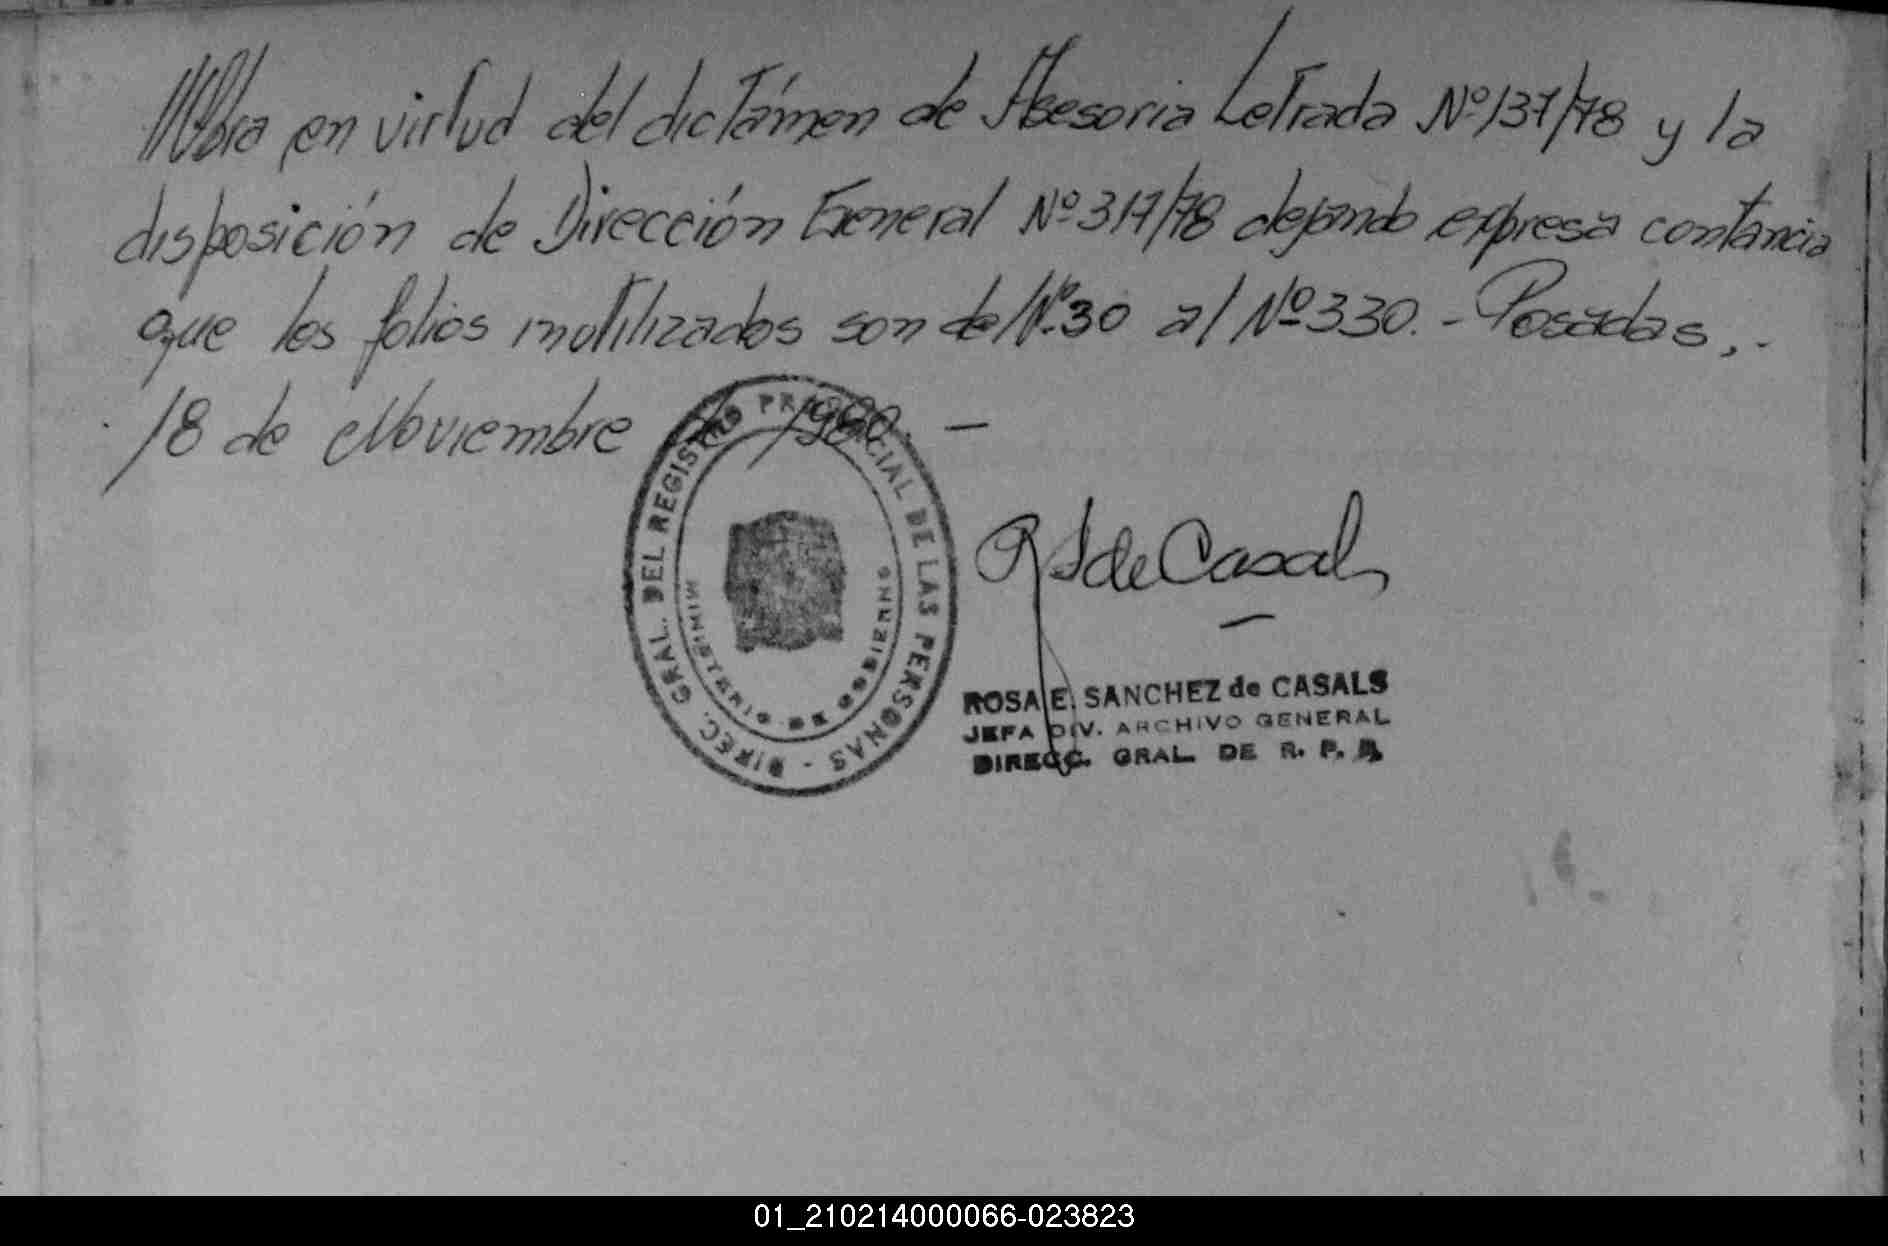 ///Obra en virtud del dictámen de Asesoria Letrada Nº 137/78 y la
disposición de Dirección General Nº 317/78 dejando expresa contancia
que los folios inutilizados son del Nº 30 al Nº 330.- Posadas,.-
18 de Noviembre de 1980. -
DIREC. GRAL. DEL REGISTRO PROVINCIAL DE LAS PERSONAS -
MINISTERIO DE GOBIERNO
R S de Casals
ROSA E. SANCHEZ de CASALS
JEFA DIV. ARCHIVO GENERAL
DIRECC. GRAL. DE R. P. P.
01_210214000066-023823